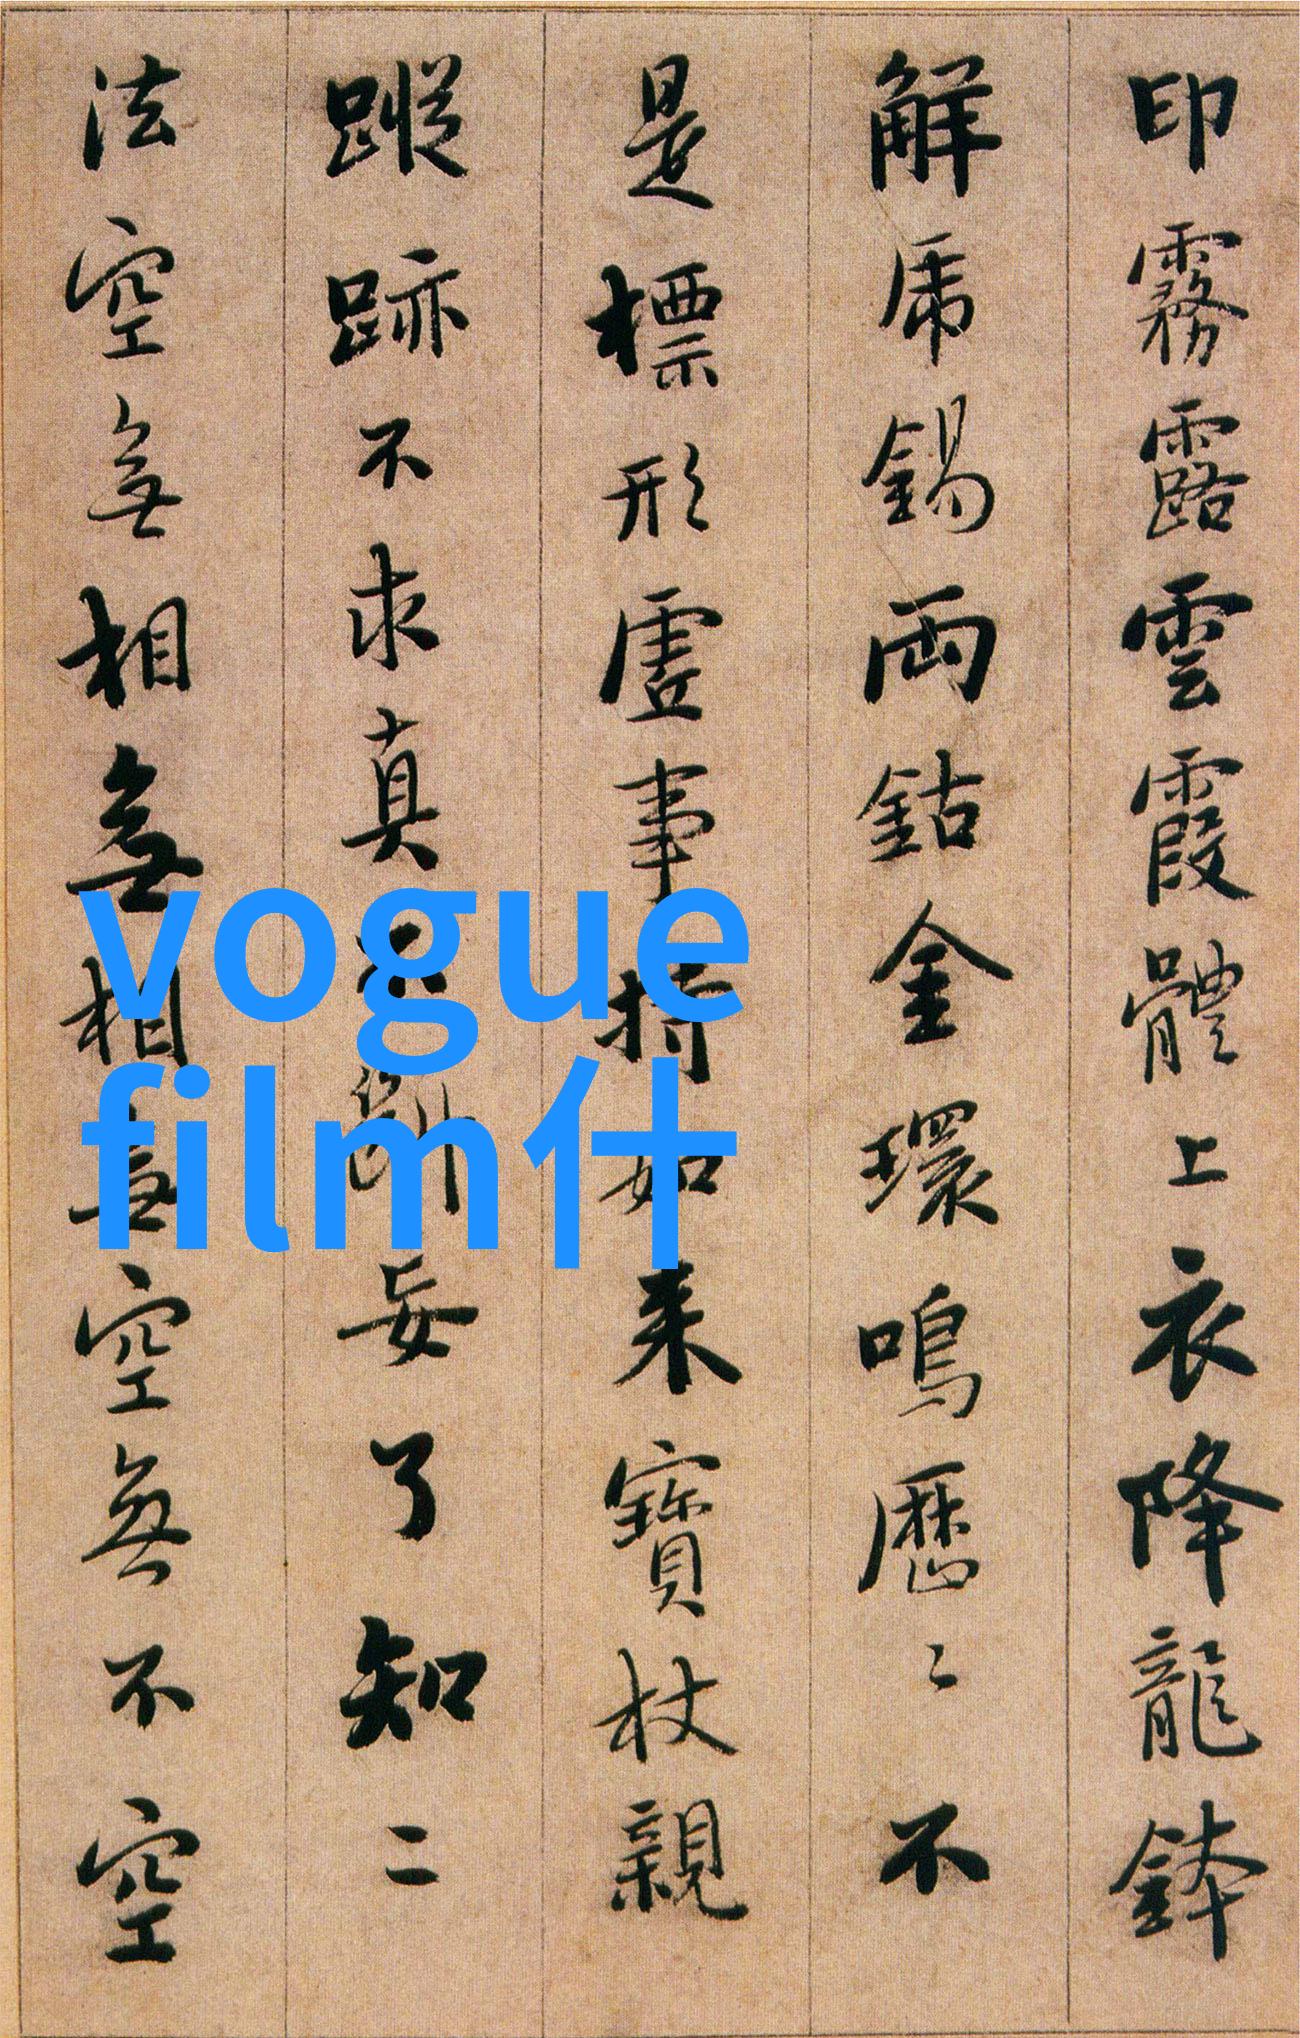 印霧露雲霞體上衣降龍鉢
解虎錫兩鈷金環鳴歷〻不
是標形虛事持如来寶杖親
蹤跡不求真不斷妄了知二
法空無相無相無空無不空
vogue
film什